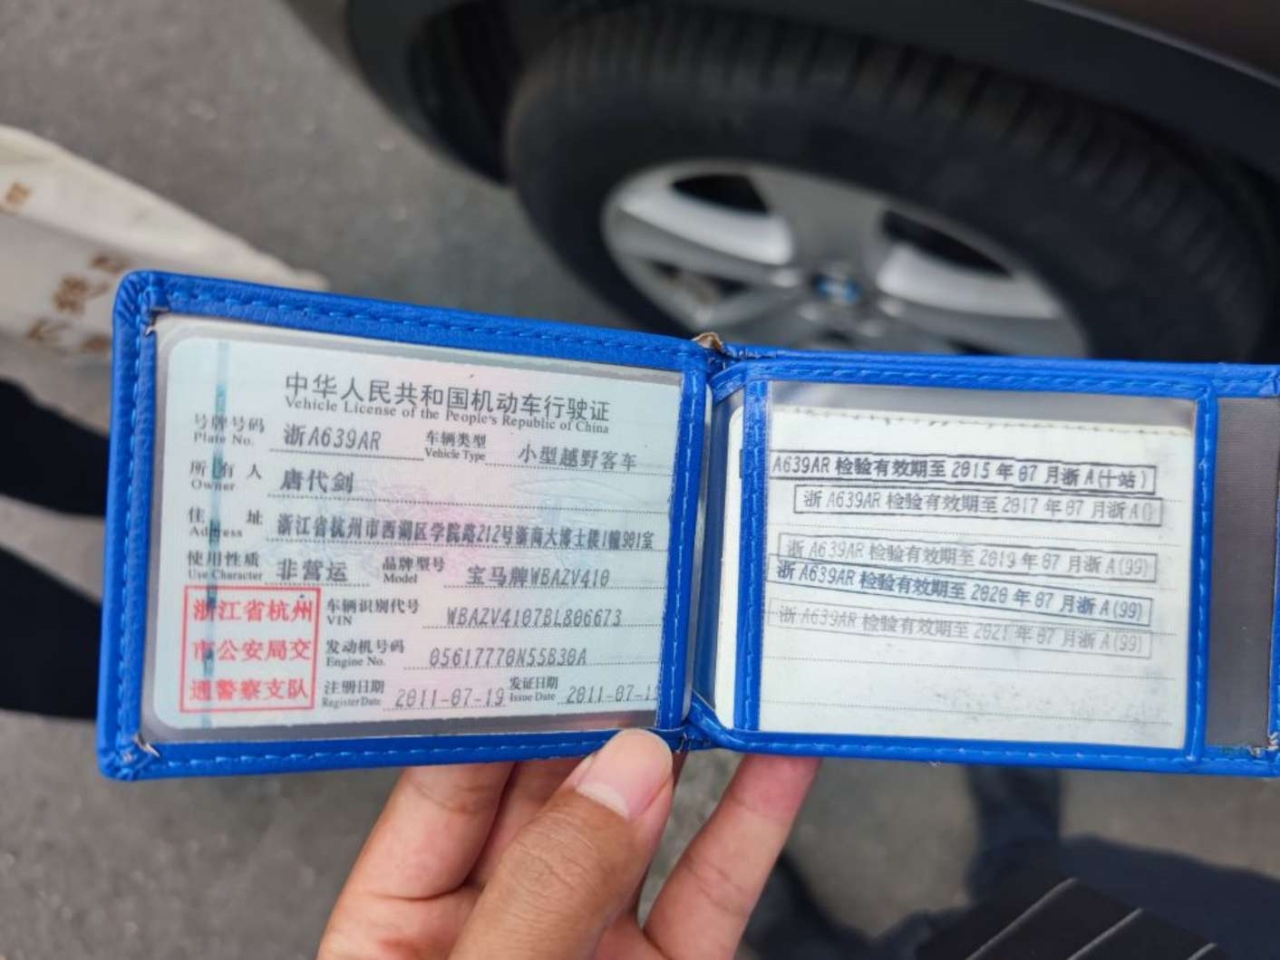 中华人民共和国机动车行驶证
Vehicle License of the People's Republic of China
号牌号码 浙A639AR 车辆类型 小型越野客车
Plate No. Vehicle Type
所有人 唐代剑
Owner
住址 浙江省杭州市西湖区学院路212号浙商大博士楼1幢901室
Address
使用性质 非营运 品牌型号 宝马牌WBAZV410
Use Character Model
浙江省杭州
市公安局交
通警察支队
车辆识别代号 WBAZV4107BL806673
VIN
发动机号码 05617770N55B30A
Engine No.
注册日期 2011-07-19 发证日期 2011-07-1
Register Date Issue Date
A639AR 检验有效期至 2015 年 07 月浙 A(十站)
浙 A639AR 检验有效期至 2017 年 07 月浙 A(
浙 A639AR 检验有效期至 2019 年 07 月浙 A(99)
浙 A639AR 检验有效期至 2020 年 07 月浙 A(99)
浙 A639AR 检验有效期至 2021 年 07 月浙 A(99)